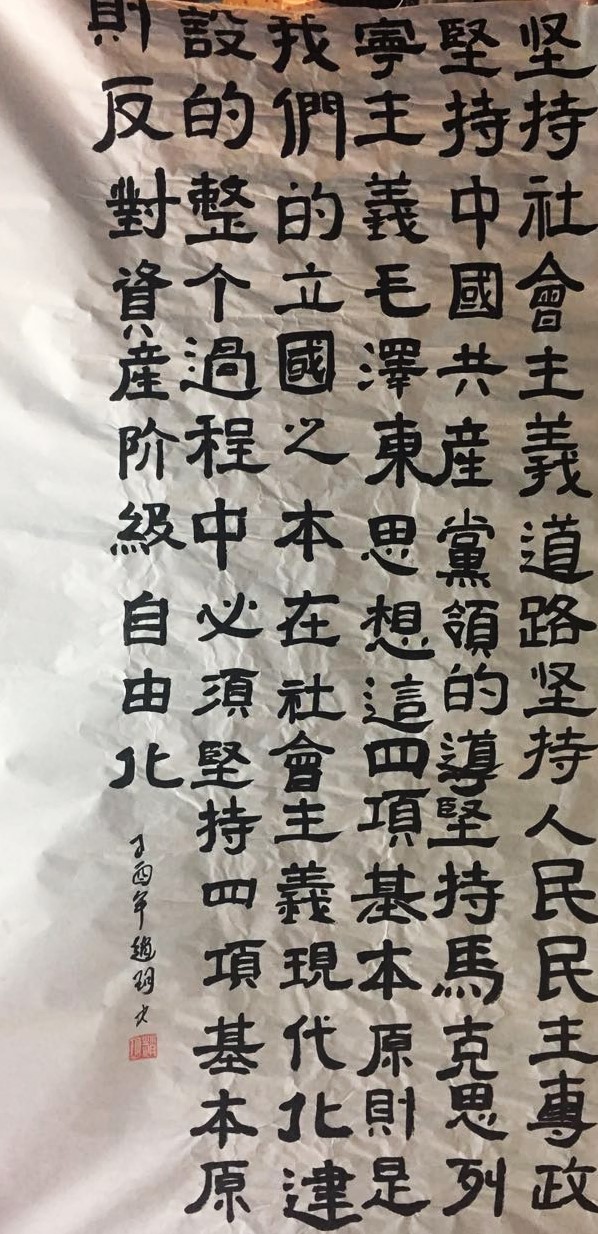 坚持社會主義道路坚持人民民主專政
堅持中國共産黨領的導堅持馬克思列
寧主義毛澤東思想這四項基本原則是
我們的立國之本在社會主義現代化建
設的整个過程中必須堅持四項基本原
則反對資産阶級自由化
丁酉年趙